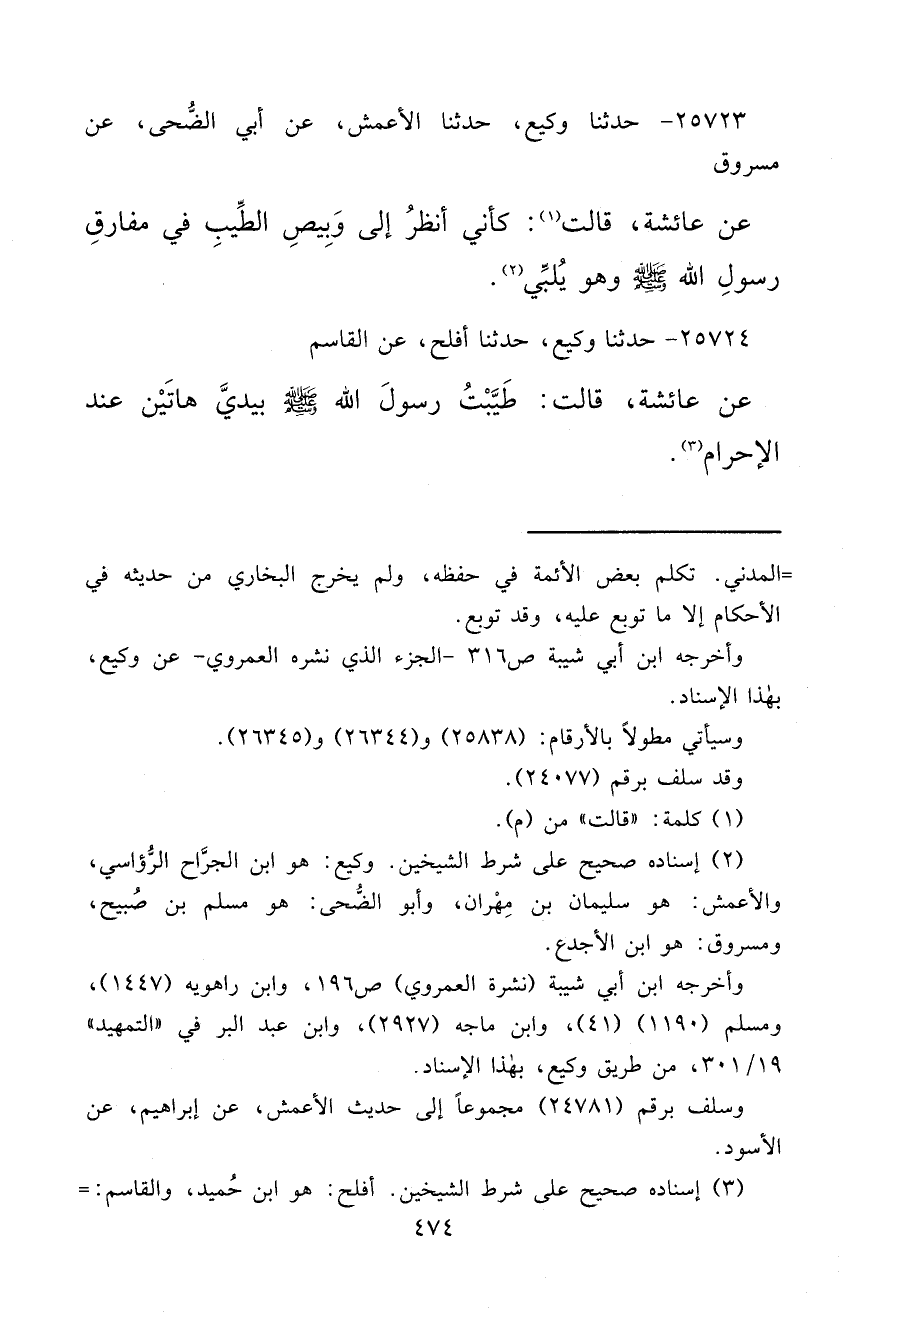 ٢٥٧٢٣- حدثنا وكيع، حدثنا الأعمش، عن أبي الضُّحى، عن
مسروق
عن عائشة، قالت(١): كأني أنظرُ إلى وَبِيصِ الطِّيبِ في مفارقِ
رسولِ الله ﷺ وهو يُلبِّي(٢).
٢٥٧٢٤- حدثنا وكيع، حدثنا أفلح، عن القاسم
عن عائشة، قالت: طَيَّبْتُ رسولَ الله ﷺ بيديَّ هاتَيْن عند
الإحرام(٣).
=المدني. تكلم بعض الأئمة في حفظه، ولم يخرج البخاري من حديثه في
الأحكام إلا ما توبع عليه، وقد توبع.
وأخرجه ابن أبي شيبة ص٣١٦ -الجزء الذي نشره العمروي- عن وكيع،
بهٰذا الإسناد.
وسيأتي مطولاً بالأرقام: (٢٥٨٣٨) و(٢٦٣٤٤) و(٢٦٣٤٥).
وقد سلف برقم (٢٤٠٧٧).
(١) كلمة: «قالت» من (م).
(٢) إسناده صحيح على شرط الشيخين. وكيع: هو ابن الجرَّاح الرُّؤاسي،
والأعمش: هو سليمان بن مِهْران، وأبو الضُّحى: هو مسلم بن صُبيح،
ومسروق: هو ابن الأجدع.
وأخرجه ابن أبي شيبة (نشرة العمروي) ص١٩٦، وابن راهويه (١٤٤٧)،
ومسلم (١١٩٠) (٤١)، وابن ماجه (٢٩٢٧)، وابن عبد البر في «التمهيد»
٣٠١/١٩، من طريق وكيع، بهٰذا الإسناد.
وسلف برقم (٢٤٧٨١) مجموعاً إلى حديث الأعمش، عن إبراهيم، عن
الأسود.
(٣) إسناده صحيح على شرط الشيخين. أفلح: هو ابن حُميد، والقاسم:=
٤٧٤